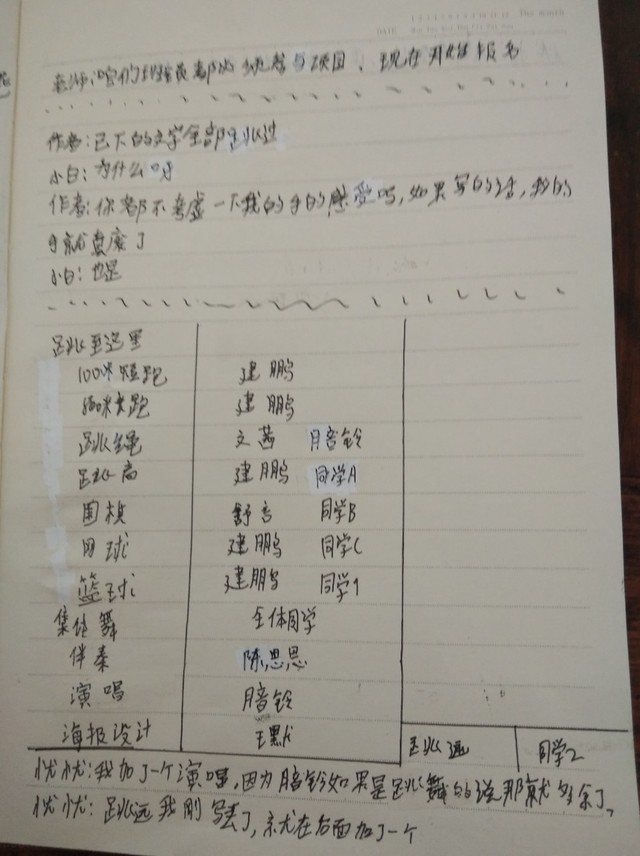 老师:咱们班级都必须参与项目,现在开始报名
作者:已下的文字全部跳过
小白:为什么呀
作者:你都不考虑一下我的手的感受吗,如果写的话,我的
手就直废了
小白:也是
跳至这里
100米短跑 建鹏
长跑 建鹏
跳绳 文茜 月音铃
跳高 建鹏 同学A
围棋 舒言 同学B
网球 建鹏 同学C
篮球 建鹏 同学1
集体舞 全体同学
伴奏 陈思思
演唱 月音铃
海报设计 王默
跳远 同学2
忧忧:我加了一个演唱,因为月音铃如果是跳舞的话那就多余了。
忧忧:跳远我刚写丢了,就在后面加了一个